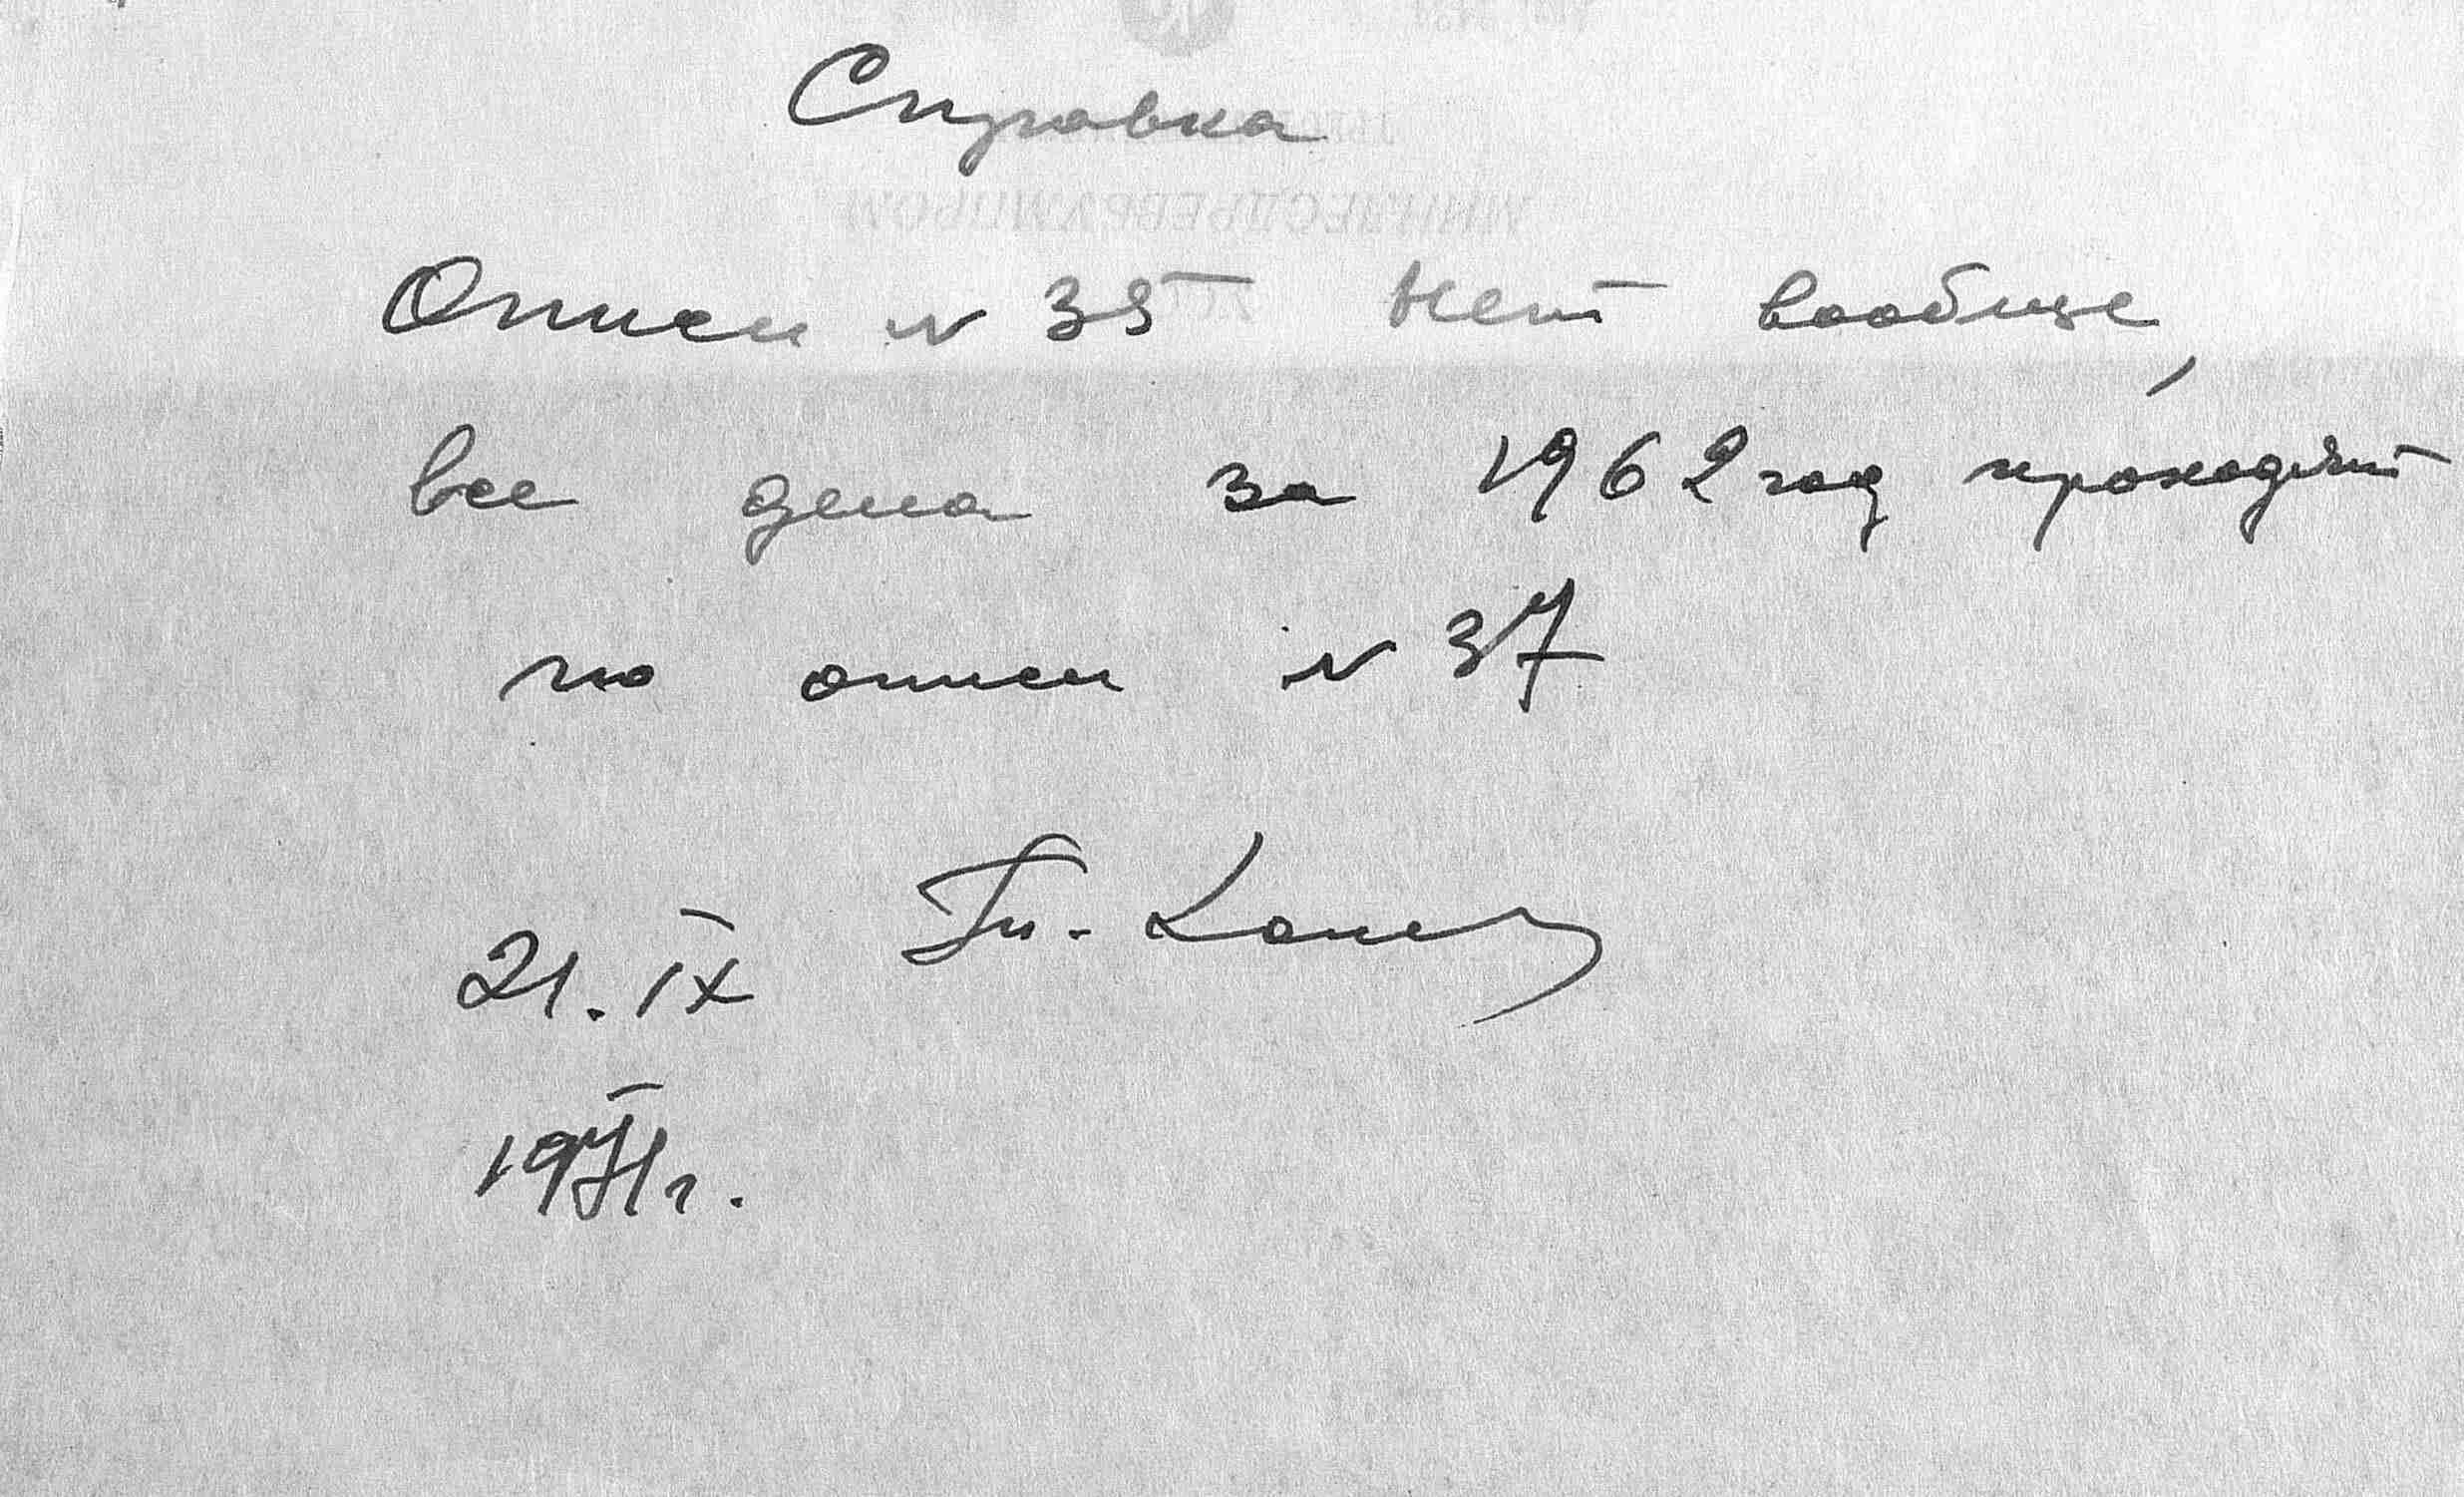 Справка
Описи N 35 нет вообще,
все дела за 1962 год проходят
по описи N 37
21. IX
1971 г.